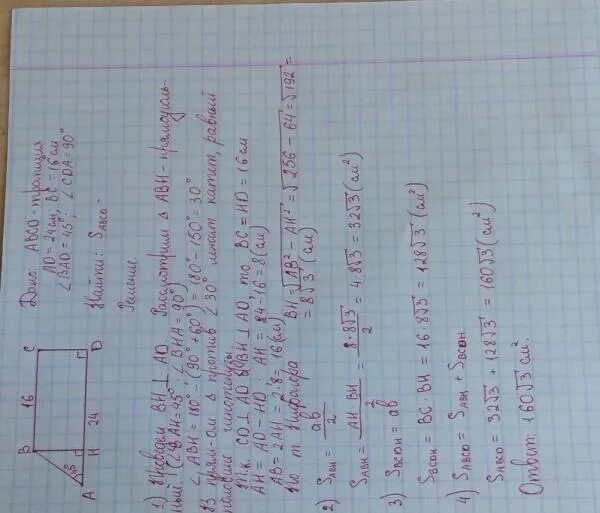 Дано: ABCD - трапеция
AD = 24 см, BC = 16 см
∠BAD = 45°; ∠CDA = 90°
Найти: S_ABCD -
Решение.
B
16
C
45°
A
H
24
D
1) Проведем BH ⊥ AD. Рассмотрим Δ ABH - прямоуголь-
ный. (∠BAH = 45°, ∠BHA = 90°)
∠ABH = 180° - (90° + 60°) = 180 - 150° = 30°
В прям-ом Δ против ∠30° лежит катет, равный
половине гипотенузы
Т.к. CD ⊥ AD и BH ⊥ AD, то BC = HD = 16 см
AH = AD - HD; AH = 24 - 16 = 8 (см)
AB = 2AH = 2·8 = 16 (см)
По т. Пифагора BH = √AB² - AH² = √256 - 64 = √192 =
= 8√3 (см)
2) S_ABH = ab/2
S_ABH = AH·BH/2 = 8·8√3/2 = 4·8√3 = 32√3 (см²)
3) S_BCDH = ab
S_BCDH = BC·BH = 16·8√3 = 128√3 (см²)
4) S_ABCD = S_ABH + S_BCDH
S_ABCD = 32√3 + 128√3 = 160√3 (см²)
Ответ: 160√3 см².